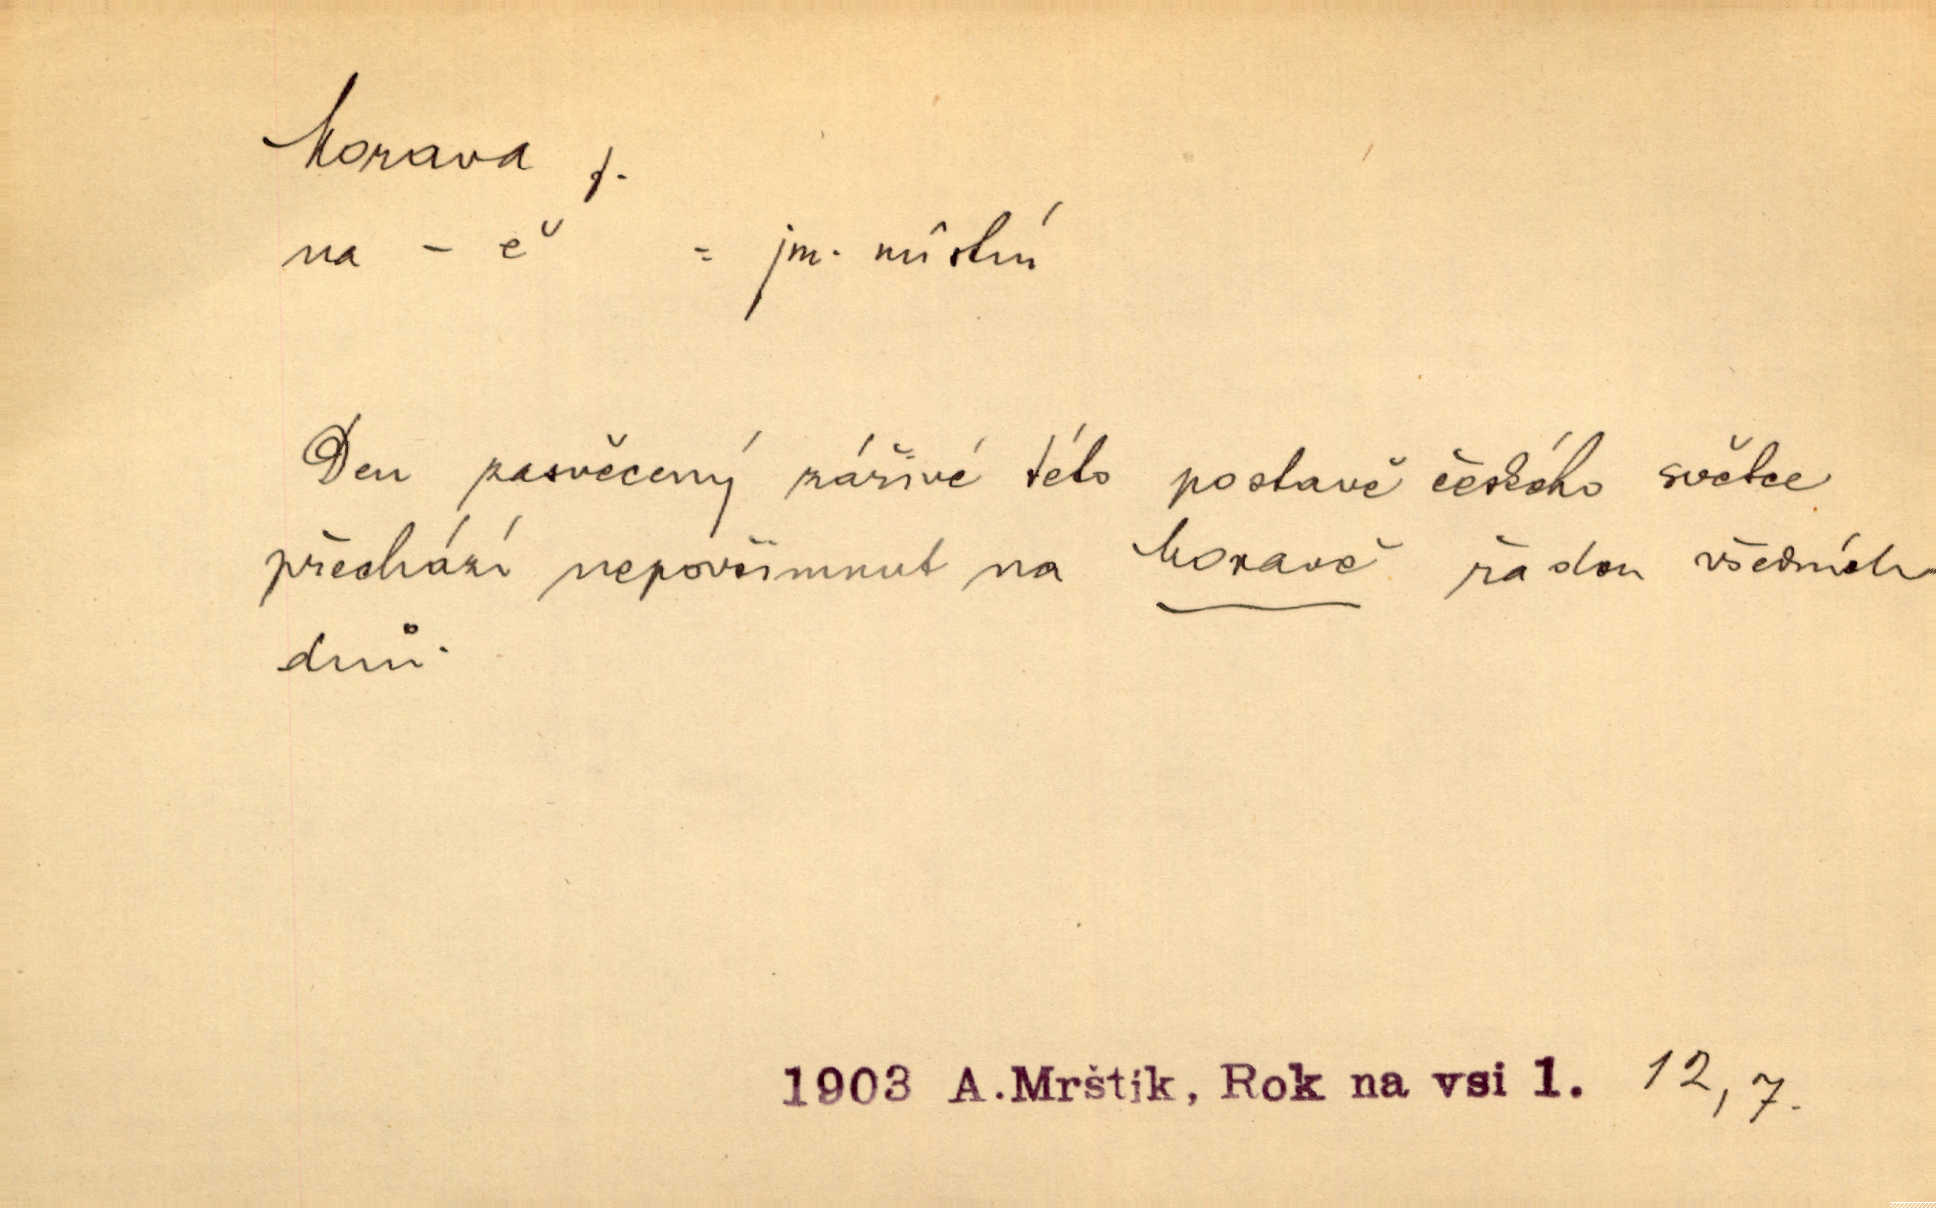 Morava f.
na - ě = jm. místní
Den zasvěcený zářivé této postavě českého světce
přechází nepovšimnut na Moravě řadou všedních
dnů.
1903 A.Mrštík, Rok na vsi 1. 12, 7.